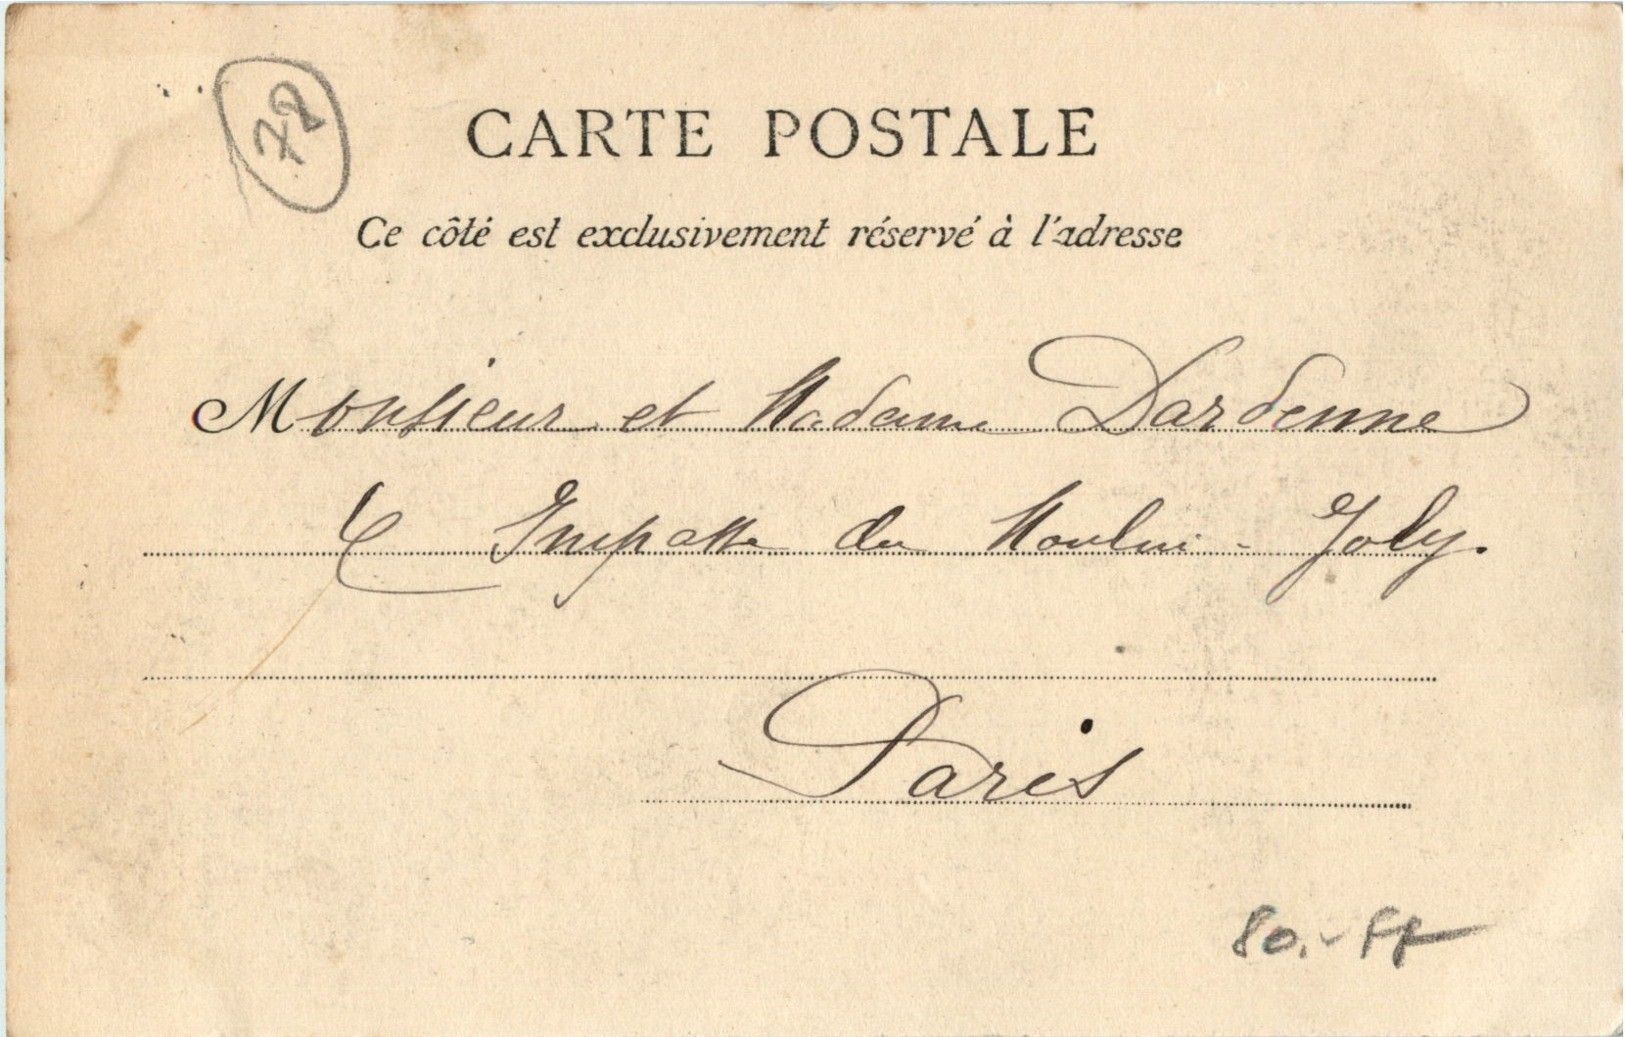 72
CARTE POSTALE
Ce côté est exclusivement réservé à l'adresse
Monsieur et Madame Dardenne
Impasse du Moulin-Joly.
Paris
80.- FF